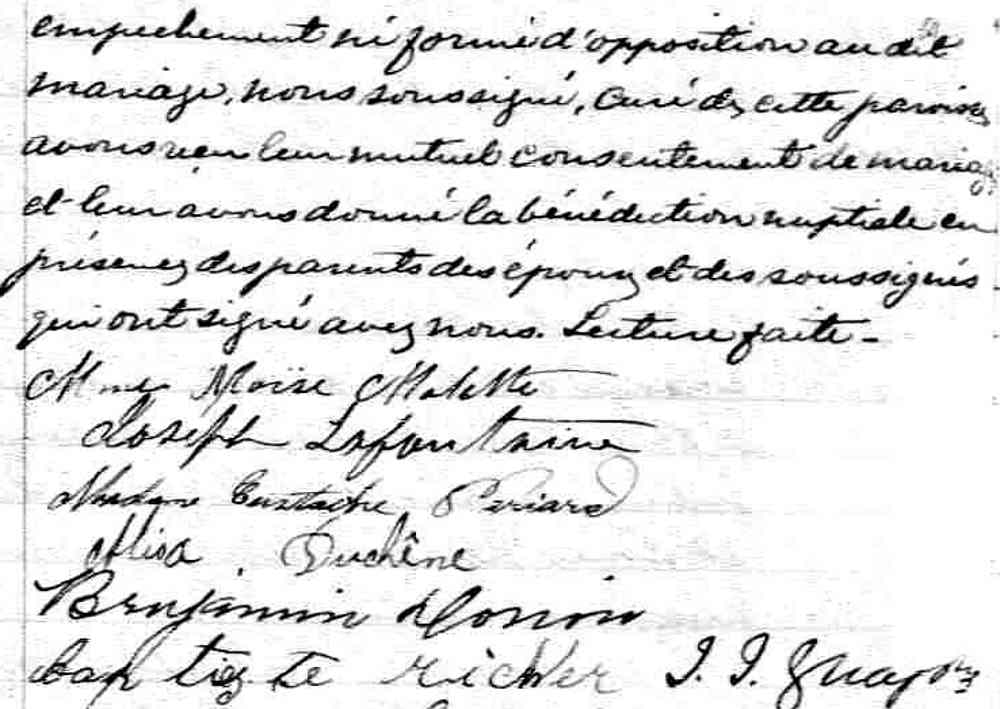 empechement ni formé d'opposition au dit
mariage, nous soussigné, Curé de cette paroisse
avons reçu leur mutuel consentement de mariage
et leur avons donné la bénédiction nuptiale en
présence des parents des époux et des soussignés
qui ont signé avec nous. Lecture faite -
Mme Moïse Malette
Joseph Lafontaine
Madame Eustache Periard
Alisa Duchêne
Benjamin
bap tis te richer J. J.